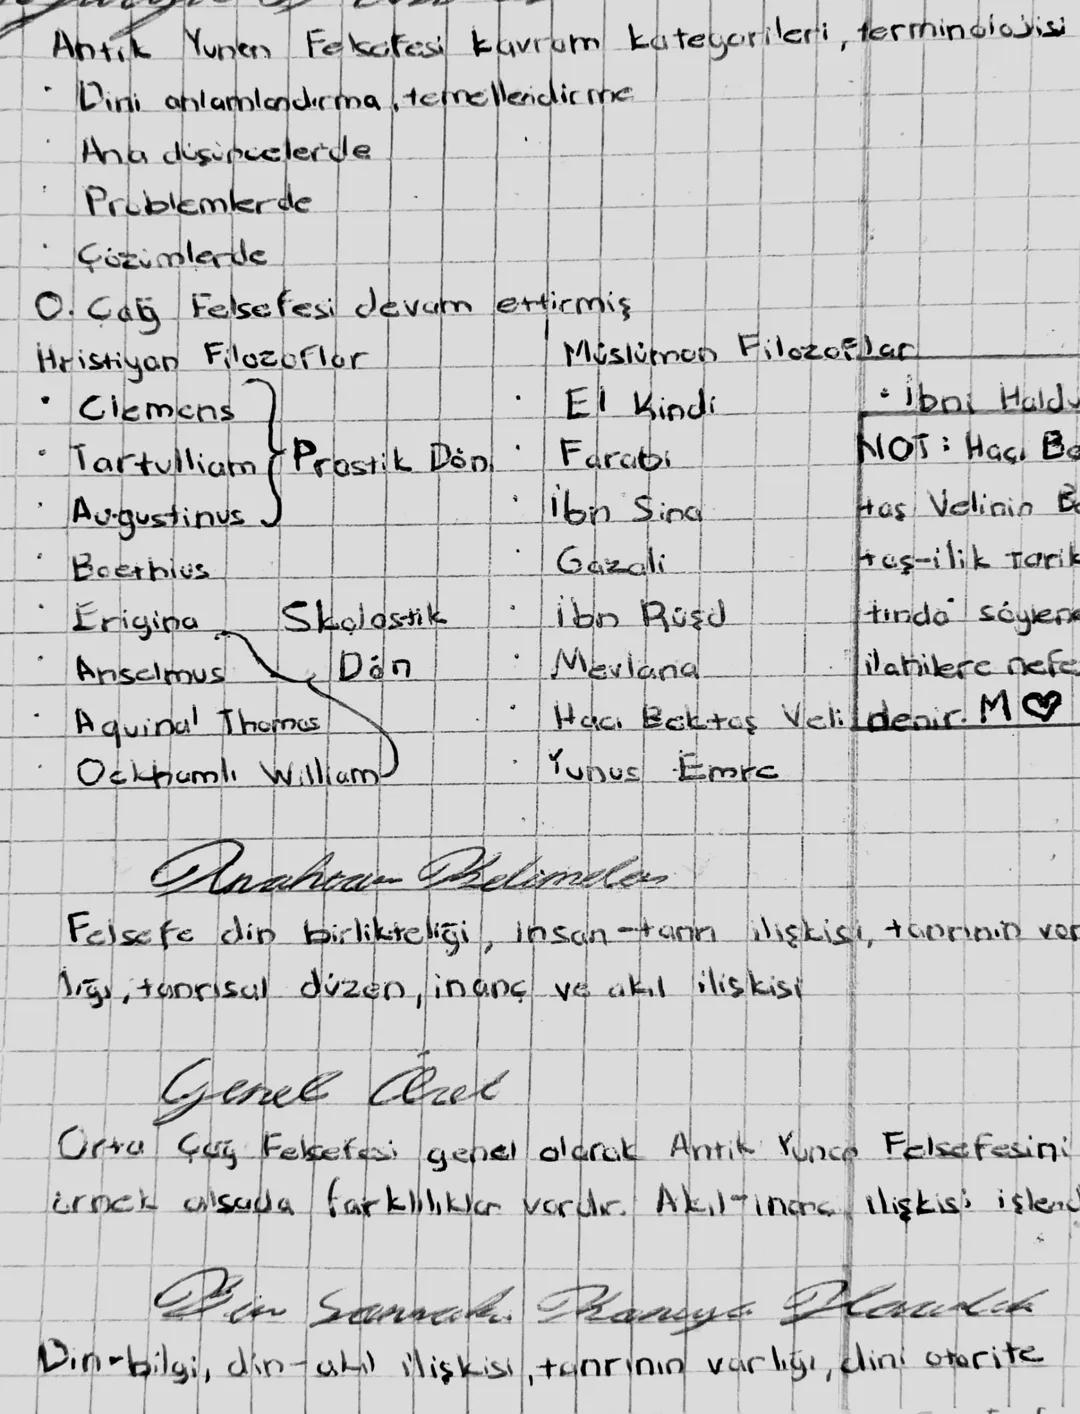 Antik Yunan Felsefesi kavram kategorileri, terminolojisi
· Dini anlamlandırma, temellendirme
· Ana düşüncelerde
· Problemlerde
· Çözümlerde
O. Çağ Felsefesi devam ettirmiş
Hristiyan Filozoflar
· Clemens
· Tartulliam
· Augustinus
Prostik Dön.
· Boethius
· Erigina
· Anselmus
· Aquinal Thomas
· Ockhamlı William
Skolostik
Dön
Müslüman Filozoflar
· El Kindi
· Farabi
· İbn Sina
· Gazali
· İbn Rüşd
· Mevlana
· Hacı Bektaş Veli
· Yunus Emre
· İbni Haldu
NOT: Hacı Be
taş Velinin Be
taş-ilik Tarik
tında söylene
ilahilere nefe
denir. M ♡
Anahtar Kelimeler
Felsefe din birlikteliği, insan-tanrı ilişkisi, tanrının var
lığı, tanrısal düzen, inanç ve akıl ilişkisi
Genel Özet
Orta Çağ Felsefesi genel olarak Antik Yunan Felsefesini
örnek alsada farklılıklar vardır. Akıl-inanç ilişkisi işlend
Din
Din-bilgi, din-akıl ilişkisi, tanrının varlığı, dini otorite